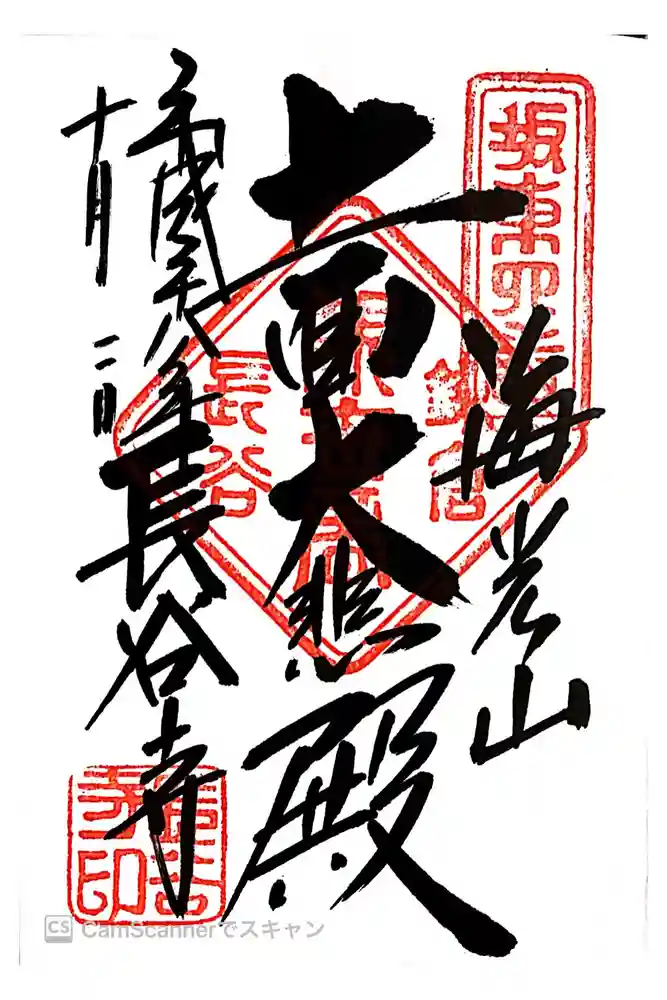 坂東四番
海光山
鎌倉
十一面大悲殿
長谷
平成 八年
長谷寺
十月二日
長谷寺印
CS CamScannerでスキャン